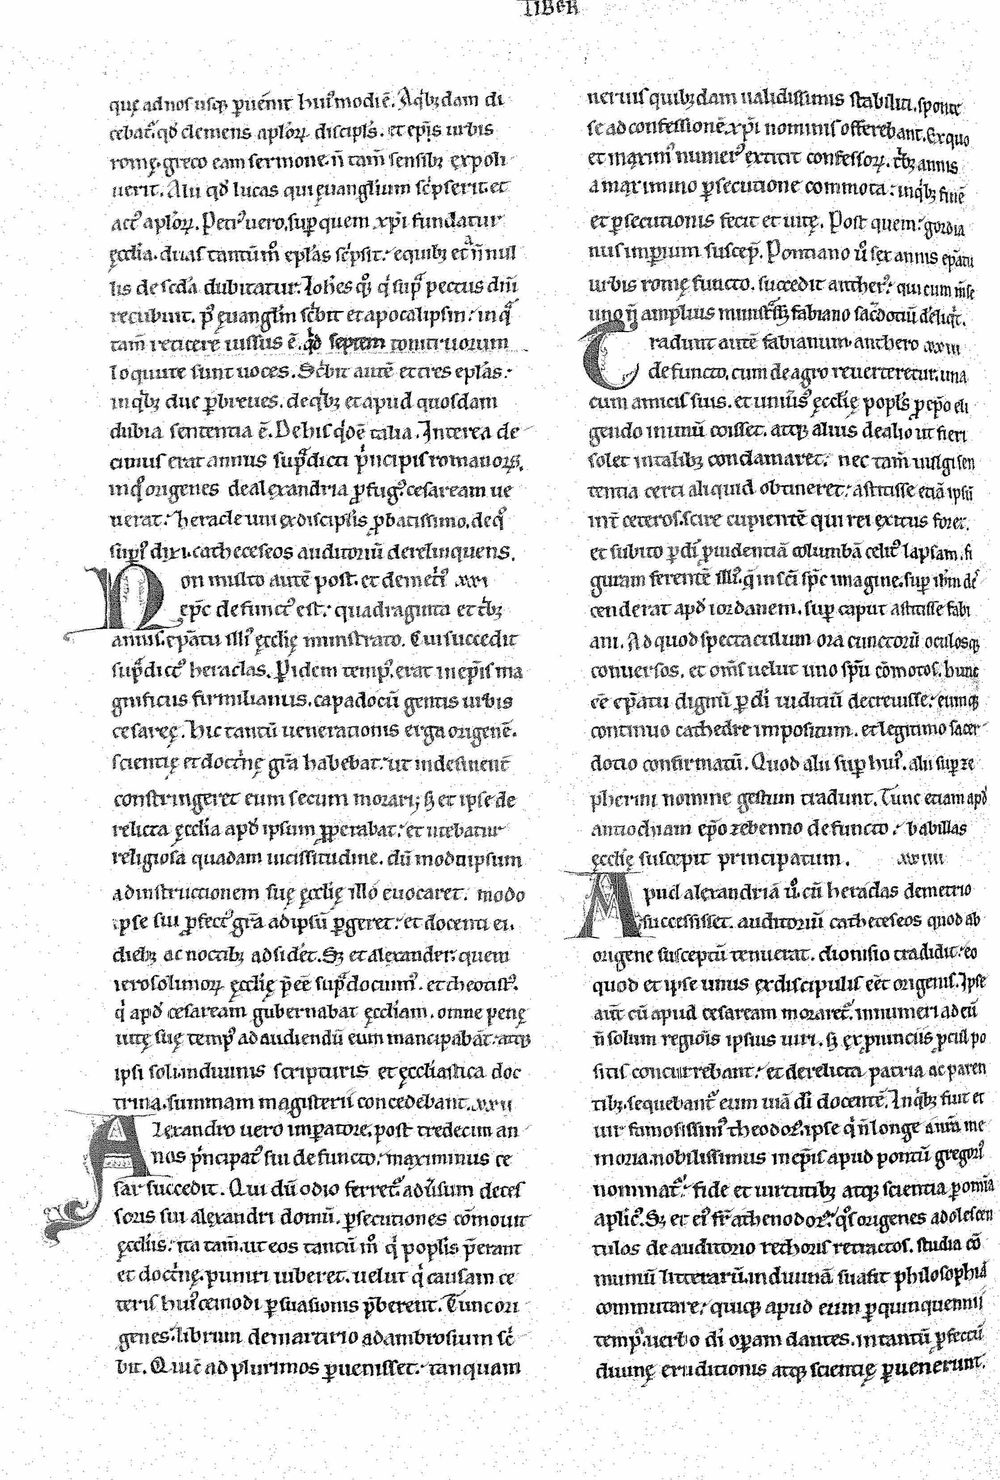 LIBER
quę ad nos usq; ꝑuenit hui᷒modi ē. Aqⁱb; dam di
cebat᷑ qđ clemens apl̓oꝝ discipl̓s. et ep̄s urbis
romę. greco eam sermone. n̄ tam̄ sensib; expoli
uerit. Alii qđ lucas qui euanglium sc̓pserit. et
act᷒ apl̓oꝝ. Petr᷒ uero, suꝑ quem xp̄i fundatur
ęcclia. duas tantūm̊ epl̓as sc̓psit. e quib; et᷑a n̄ nul
lis de sc̄da dubitatur. Ioh̄es q᷒; qⁱ supᷓ pectus dn̄i
recubuit. p᷒ euangliu̅ sc̓bit et apocalipsin. in qᷓ
tam̄ reticere iussus ē. qđ septem tonitruorum
locute sunt uoces. Sc̓bit autē et tres epl̓as.
in qⁱb; due ꝑbreues. de qⁱb; et apud quosdam
dubia sententia ē. De his qⁱdē talia. Interea de
cimus erat annus supᷓdicti pⁱncipis romanoꝝ.
in q̊ origenes de alexandria ꝓfug᷒ cesaream ue
nerat. heracle uni ex discipl̓is ꝓbatissimo, de q̊
superi᷒ dixi. catheceseos auditoriū derelinquens.
Non multo autē post. et demetri᷒ .xxi.
ep̄c defunct᷒ est. quadraginta et tⁱb;
annis. ep̄atu illi᷒ ęcclię ministrato. Cui succedit
supᷓdict᷒ heraclas. Pⁱdem temp᷒. erat in ep̄is ma
gnificus firmilianus. capadocū gentis urbis
cesareę. hic tantū uenerationis erga origenē.
scientię et doctⁱnę gr̄a habebat. ut indesinent̄
constringeret eum secum morari; s; et ipse de
relicta ęcclia apđ ipsum ꝓꝑerabat. et utebatur
religiosa quadam uicissitudine. dū modo ipsum
ad instructionem suę ęcclię illo euocaret. modo
ipse sui ꝓfect᷒ gr̄a ad ipsū ꝑgeret. et docenti ei.
dieb; ac noctib; adsidēt. S; et alexander. quem
ierosolimoꝝ ęcclię p̄eē supᷓ docuim᷒. et theotist᷒.
qⁱ apđ cesaream gubernabat ęccliam. omne penę
uitę suę temp᷒ ad audiendū eum mancipabāt. atq;
ipsi soli. in diuinis scripturis et ecclīastica doc
trina. summam magisterii concedebant. .xxii.
Alexandro uero imꝑatore, post tredecim an
nos pⁱncipat᷒ sui defuncto. maximinus ce
sar succedit. Qui dū odio ferret᷑ adūsum deces
soris sui alexandri domū. ꝑsecutiones cōmouit
ęccliis. ita tam̄. ut eos tantū m̊ qⁱ poplis p̄erant
et doctⁱnę. puniri iuberet. uelut qⁱ causam ce
teris hui᷒cemodi ꝑsuasionis p̄berent. Tunc ori
genes. librum de martirio ad ambrosium sc̓
bit. Qui cū ad plurimos ꝑuenisset. tanquam
neruis quib;dam ualidissimis stabiliti. sponte
se ad confessionē xp̄i nominis offerebant. Ex quo
et maxim᷒ numer᷒ extitit confessoꝝ. tⁱb; annis
a maximino ꝑsecutione commota. in qⁱb; finē
et ꝑsecutionis fecit et uitę. Post quem. gordia
nus imꝑium suscep̄. Pontiano ū sex annis ep̄atu
urbis romę functo. succedit anther᷒. qui cum m̄se
uno n̄ amplius ministᷓss; fabiano sac̄dotiū deliqⁱt.
Tradunt autē fabianum. anthero .xxiii.
defuncto, cum de agro reuerteretur. una
cum amicis suis. et uniūs᷒ ęcclię popl̓s ꝓ ep̄o eli
gendo in unū coisset. atq; alius de alio ut fieri
solet in talib; conclamaret. nec tam̄ uulgi sen
tentia certi aliquid obtineret. astitisse etiā ipsū
int̄ ceteros. scire cupientē qui rei exitus foret.
et subito ꝑ di᷑ ꝓuidentiā columbā celit᷒ lapsam. fi
guram ferentē illi᷒. q̄ in sc̄i sp̄c imagine. suꝑ ih̄m de
cenderat apđ iordanem. suꝑ caput astitisse fabi
ani. Ad quod spectaculum ora cunctorū oculosq;
conuersos. et om̄s uelut uno sp̄u cōmotos. hunc
eē ep̄atu dignū ꝑ di᷑ iuditiū decreuisse. eumq;
continuo cathedre impositum. et legitimo sacer
dotio confirmatū. Quod alii suꝑ hui᷒. alii suꝑ ze
pherini nomine gestum tradunt. Tunc etiam apđ
antiochiam ep̄o zebenno defuncto. babillas
ęcclię suscepit principatum. .xxiiii.
Apud alexandriā ū. cū heraclas demetrio
successisset. auditoriū catheceseos quod ab
origene susceptū tenuerat. dionisio tradidit. eo
quod et ipse unus ex discipulis eēt origenis. Ipse
aut̄ cū apud cesaream moraret᷑. innumeri ad eū
n̄ solum regiōis ipsius uiri. s; ex ꝓuinciis ꝓcul po
sitis concurrebant. et derelicta patria ac paren
tib;. sequebant᷑ eum uiā di᷑ docentē. In qⁱb; fuit et
uir famosissim᷒ theodor᷒. ipse qⁱ n̄ longe an̄ nr̄a me
moria. nobilissimus in ep̄is apud pontū gregori᷒
nominat᷑. fide et uirtutib; atq; scientia ꝓ omīa
aplic᷒. S; et ei᷒ fr̄ athenodor᷒. q᷒s origenes adolescen
tulos de auditorio rethoris retractos. studia cō
munū litterarū. in diuinā suasit philosophiā
commutare. quiq; apud eum ꝑ quinquennii
temp᷒. uerbo di᷑ oꝑam dantes. in tantū ꝓfectū
diuinę eruditionis atq; scientię ꝑuenerunt.